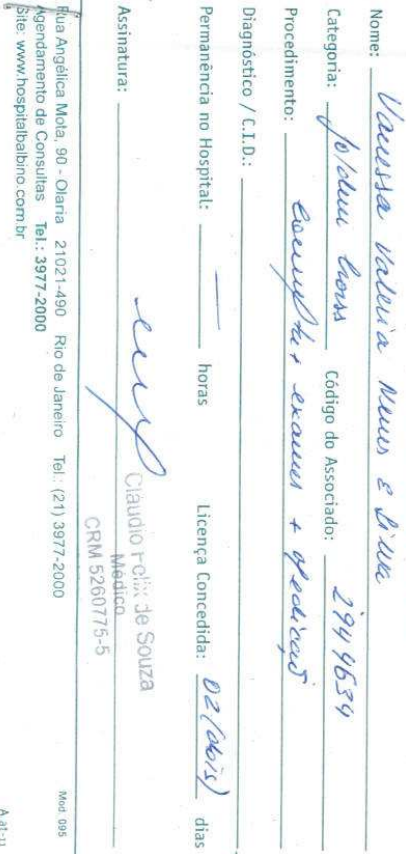 Nome: Vanessa Valeria Nunes e Silva
Categoria: Código do Associado: 2949634
Procedimento: + exames +
Diagnóstico / C.I.D.:
Permanência no Hospital: — horas Licença Concedida: 02 (dois) dias
Assinatura:
Claudio Felix de Souza
Médico
CRM 5260775-5
Rua Angélica Mota, 90 - Olaria 21021-490 Rio de Janeiro Tel.: (21) 3977-2000
Agendamento de Consultas Tel.: 3977-2000
Site: www.hospitalbalbino.com.br
Mod. 095